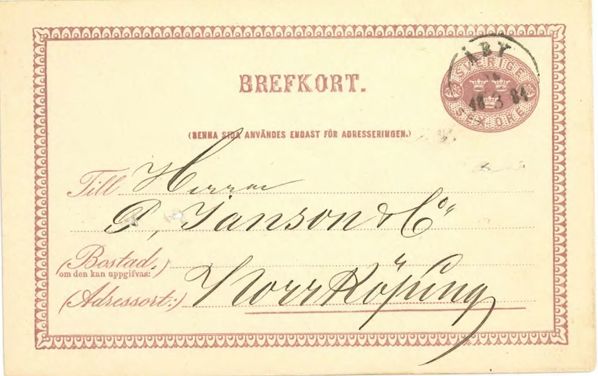 ÅBY
SVERIGE
BREFKORT.
18 3 81
SEX ÖRE
(DENNA SIDA ANVÄNDES ENDAST FÖR ADRESSERINGEN.)
Till Herrar
P. Janson & Co
(Bostad,
om den kan uppgifvas:)
(Adressort:) Norrköping